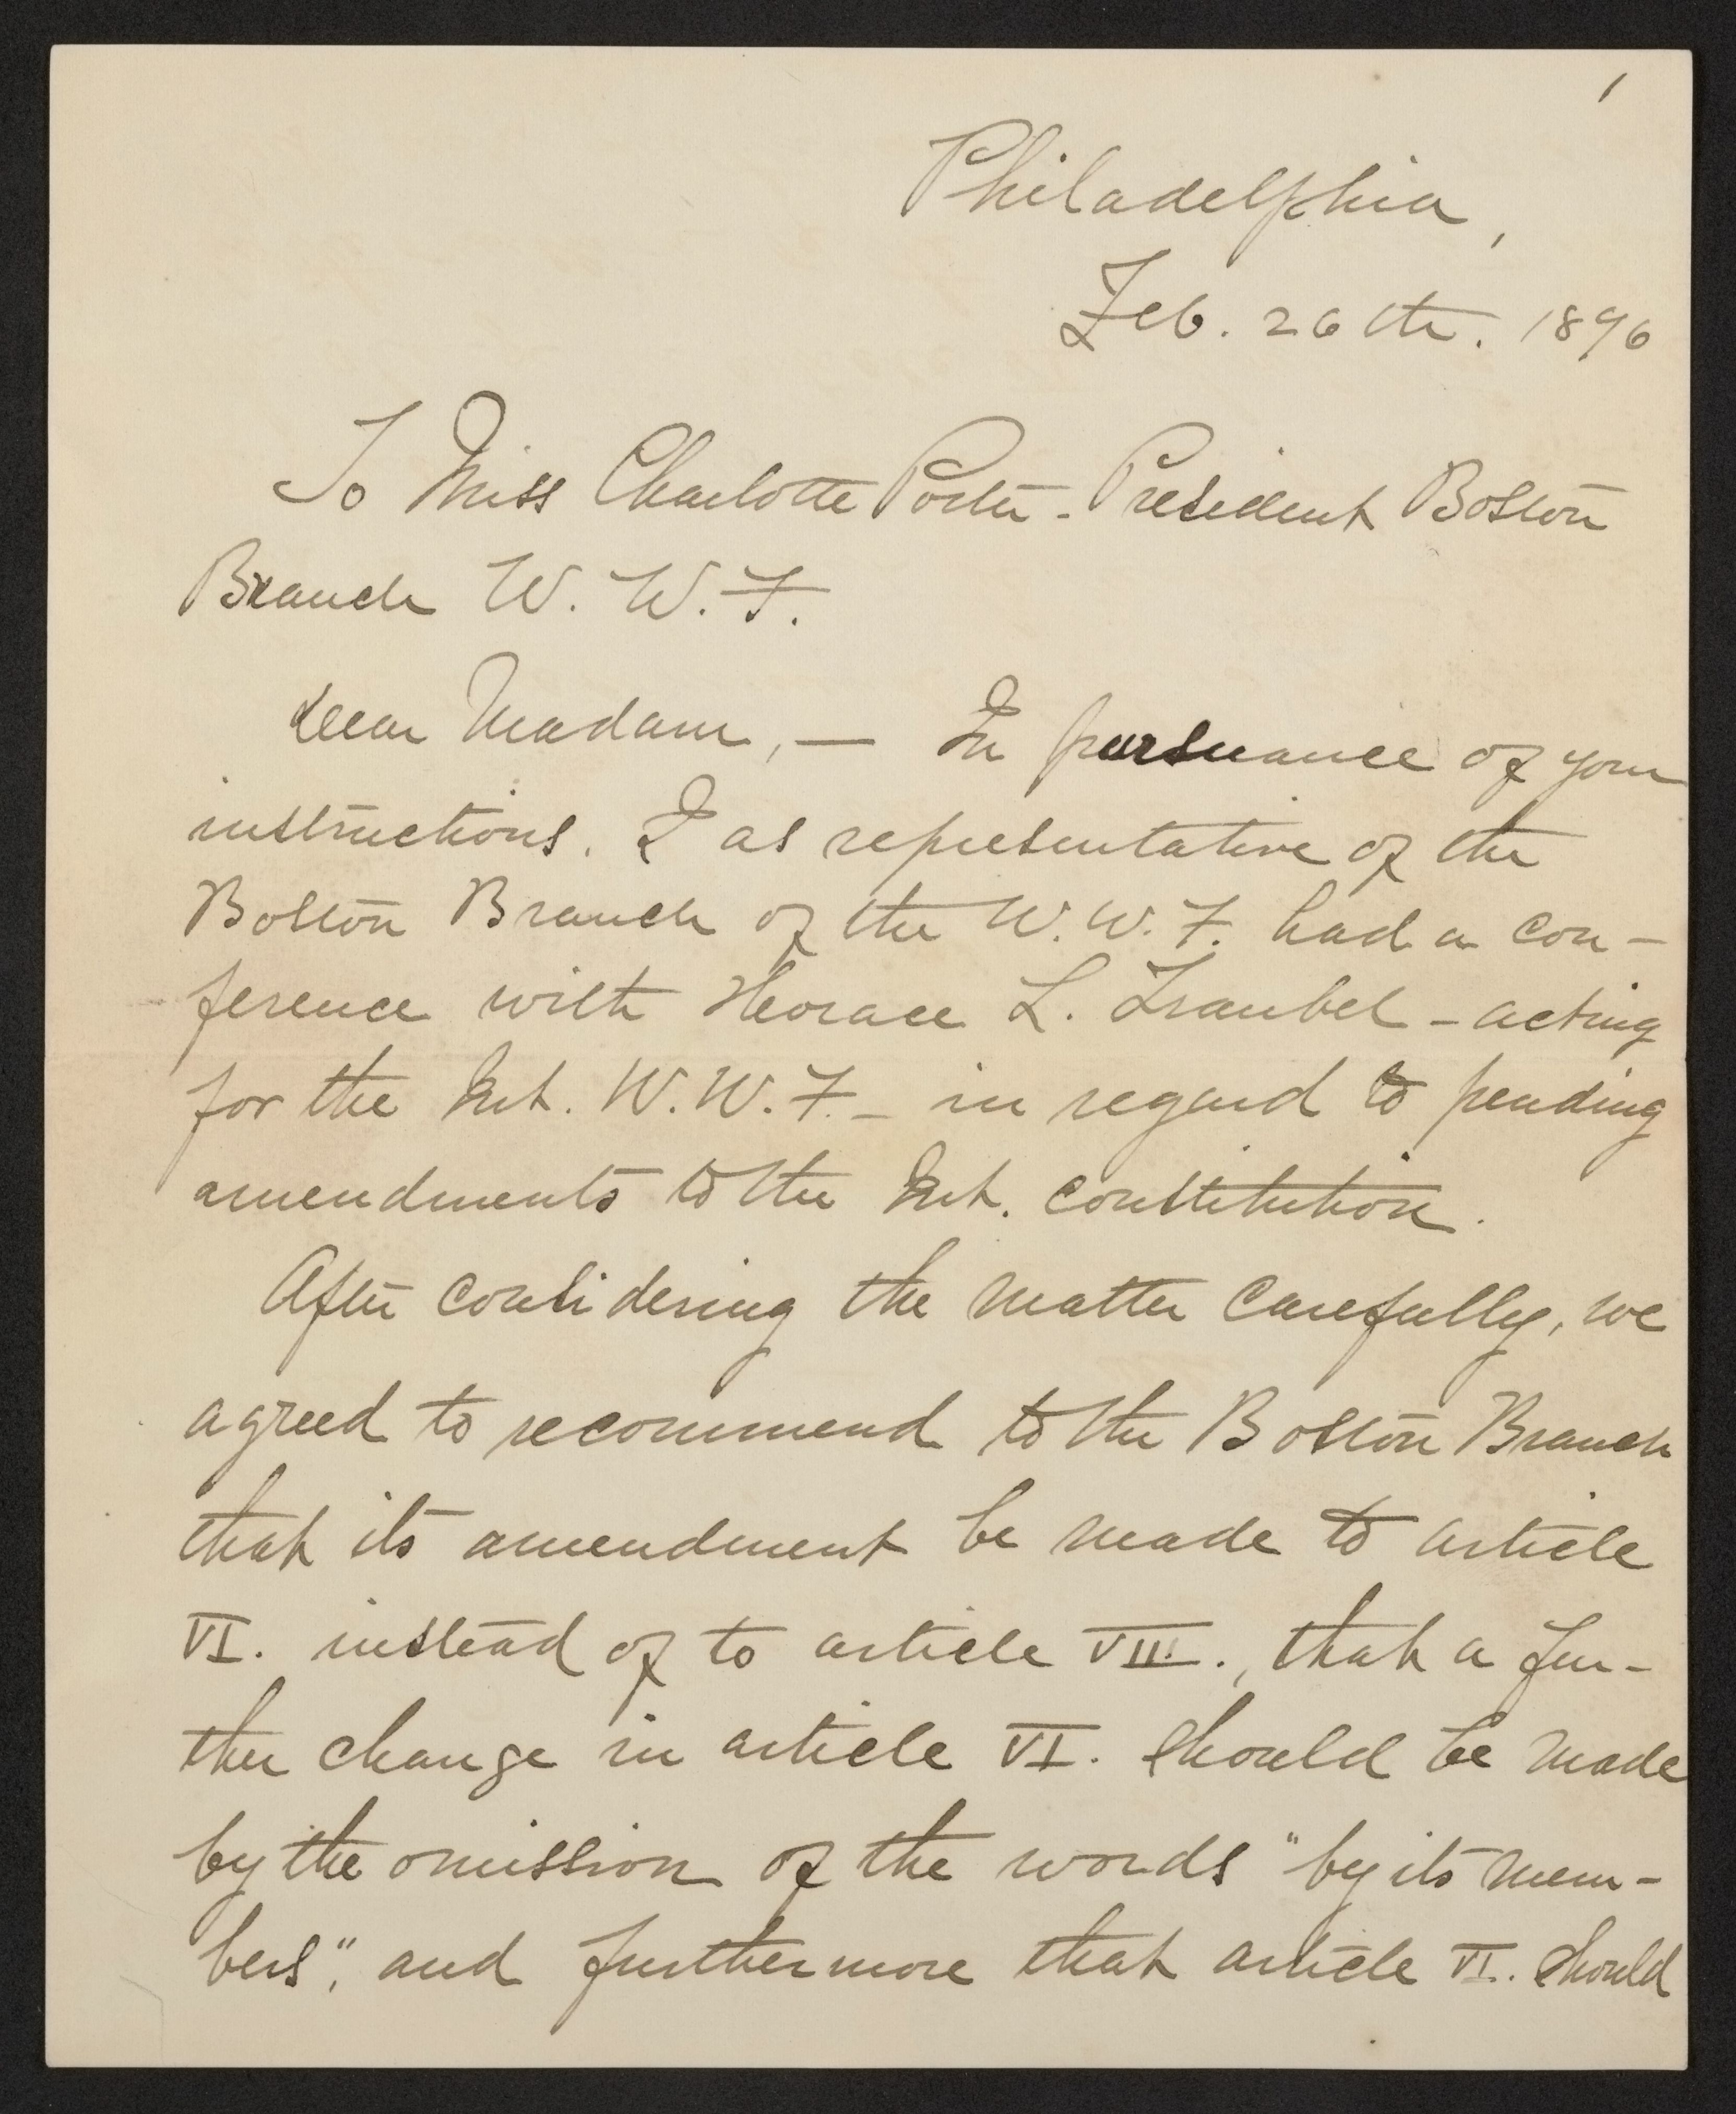 1
Philadelphia,
Feb. 26th. 1896
To Miss Charlotte Porter - President Boston
Branch W. W. F.
Dear Madam, — In pursuance of your
instructions. I as representative of the
Boston Branch of the W. W. F. had a con-
ference with Horace L. Traubel - acting
for the Int. W. W. F. - in regard to pending
amendments to the Int. constitution.
After considering the matter carefully, we
agreed to recommend to the Boston Branch
that its amendment be made to article
VI. instead of to article VII., that a fur-
ther change in article VI. should be made
by the omission of the words "by its mem-
bers", and furthermore that article VI. should